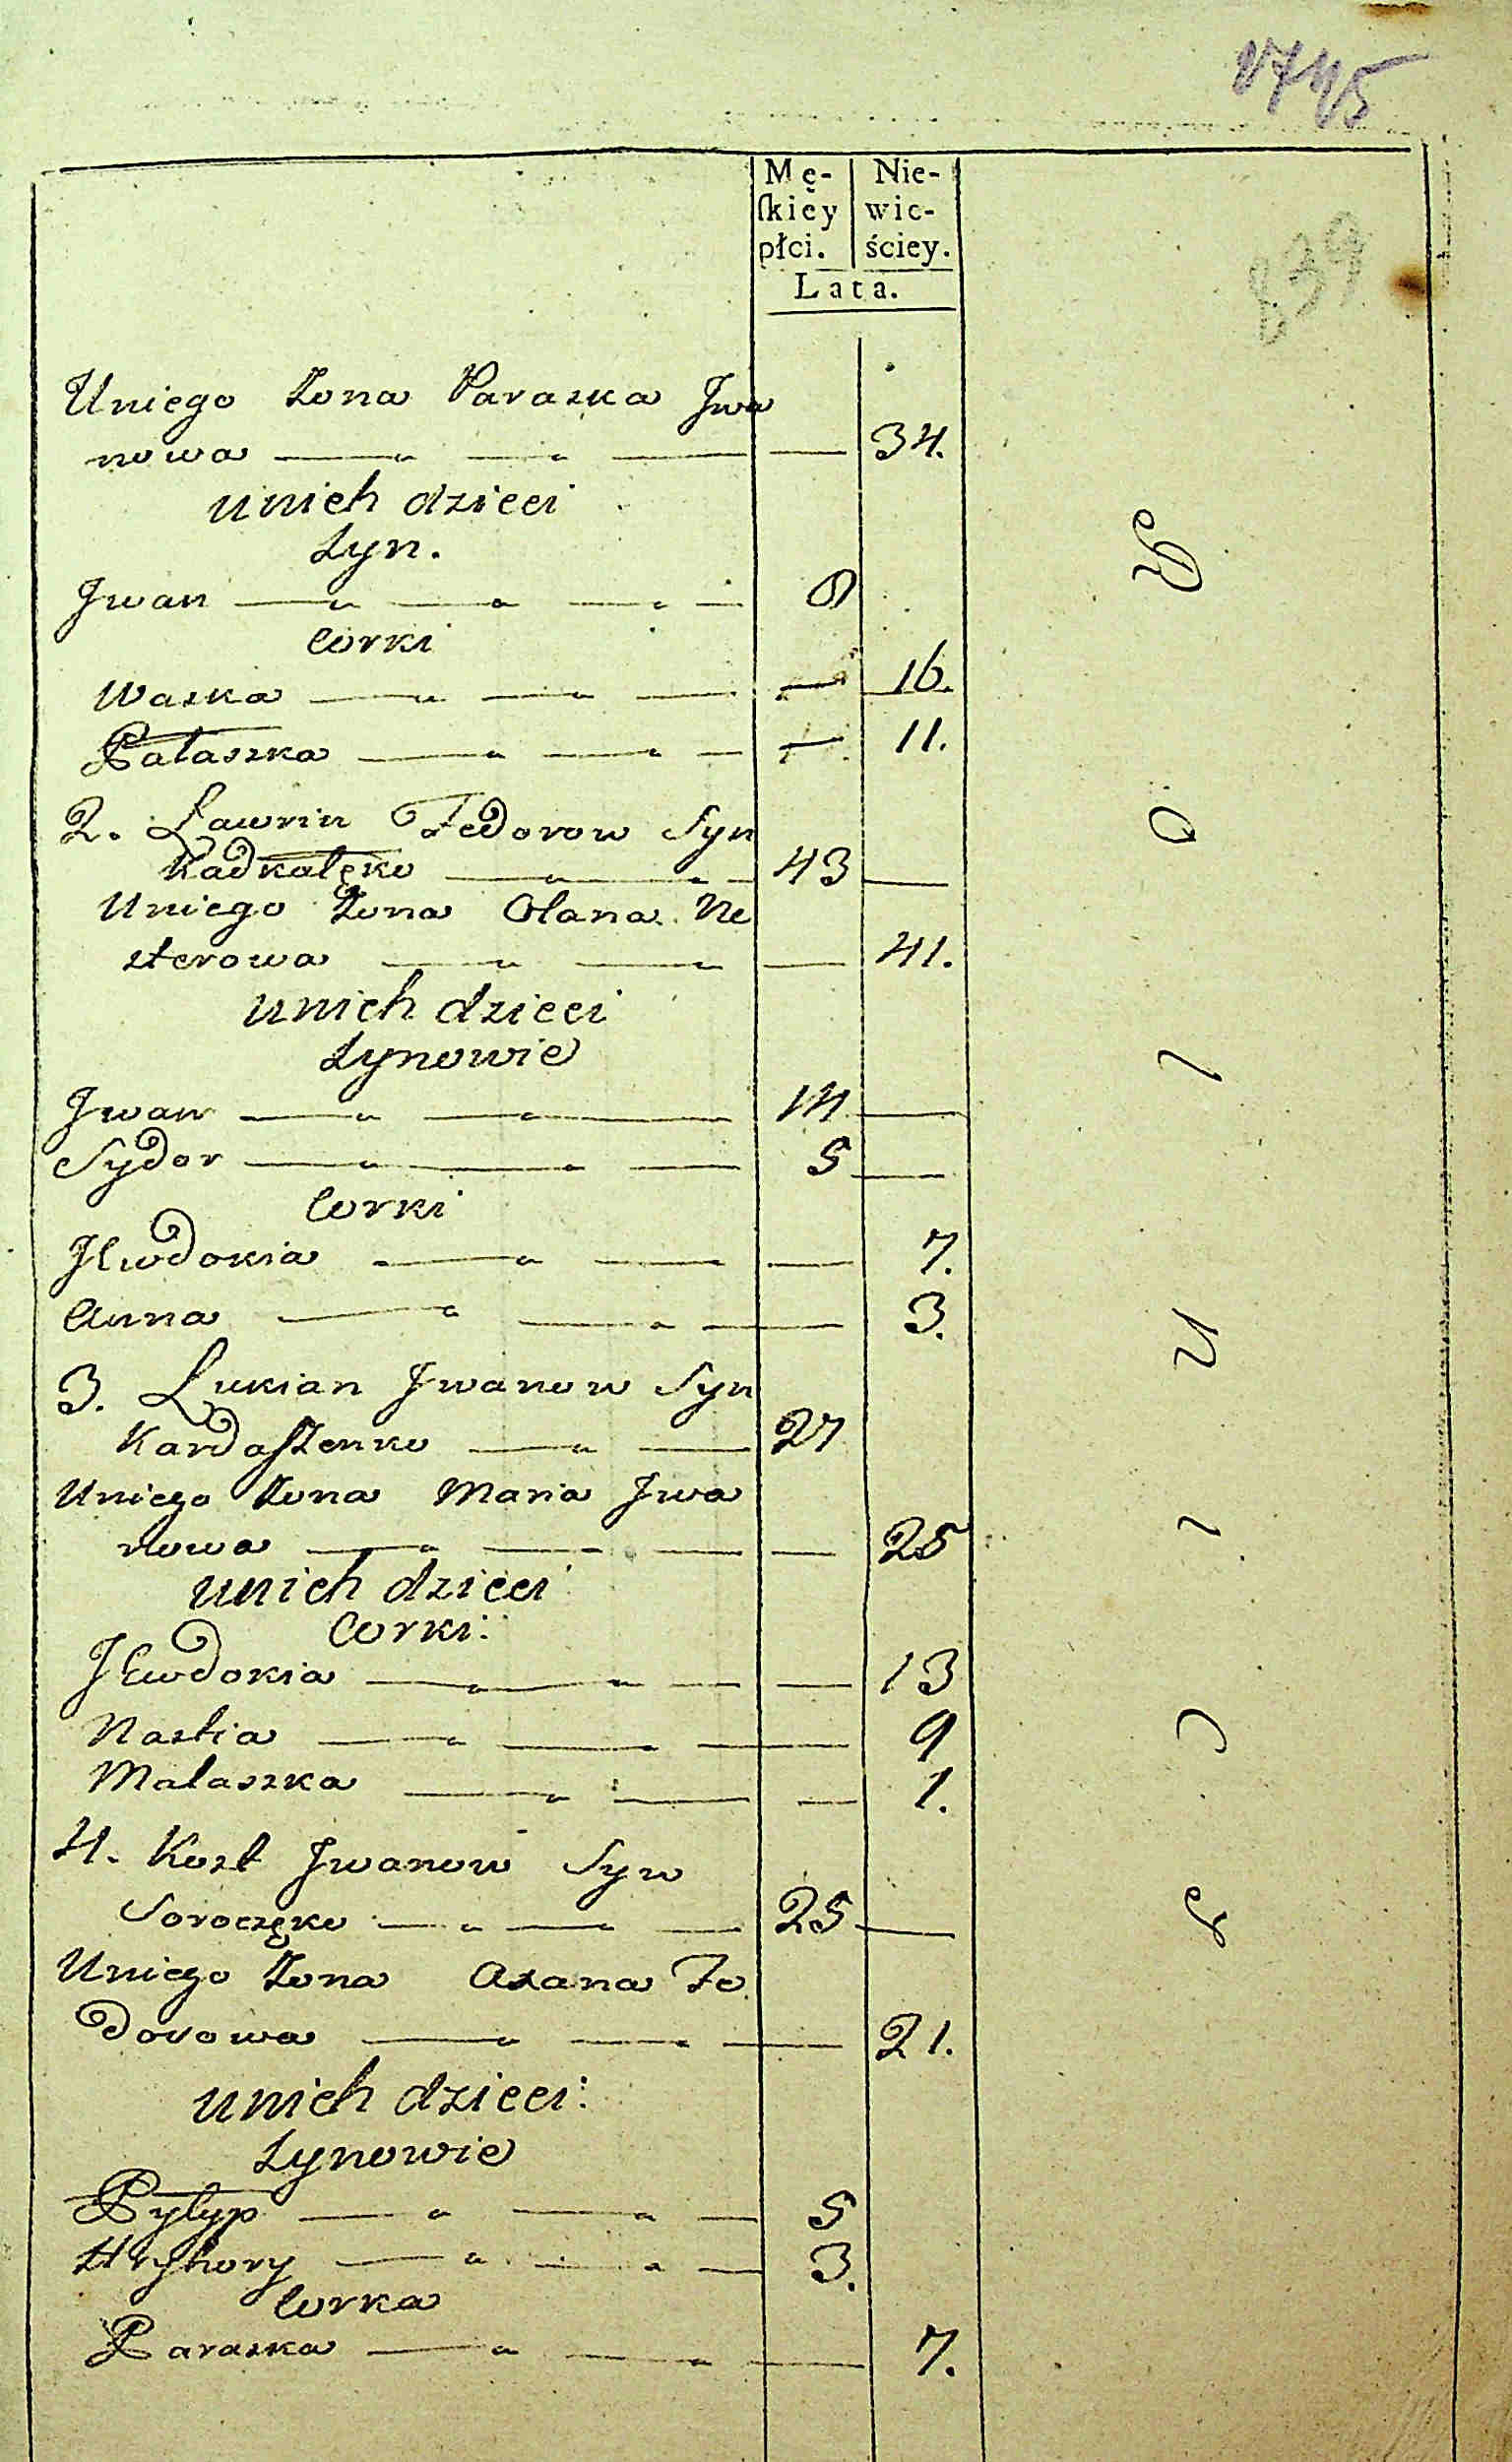 2745
Mę- Nie-
ſkiey wie-
płci. ściey.
Lata.
839
Uniego Zona Paraska Jwa
nowa 34.
unich dzieci
Syn.
Jwan 8
Corki
Waska 16.
Pałaszka 11.
2. Ławrin Fedorow Syn
Kadkalęko 43
Uniego Zona Olana Ne
sterowa 41.
unich dzieci
Synowie
Jwan 14
Sydor 5
Corki
JEwdokia 7.
Anna 3.
3. Lukian Jwanow Syn
Kardaſzenko 27
Uniego Zona Maria Jwa
nowa 25
unich dzieci
Corki:
JEwdokia 13
Nastia 9
Małaszka 1.
4. Kost Jwanow Syn
Soroczęko 25
Uniego Zona Axana Fe
dorowa 21.
unich dzieci:
Synowie
Pylyp 5
Hryhory 3.
Corka
Paraska 7.